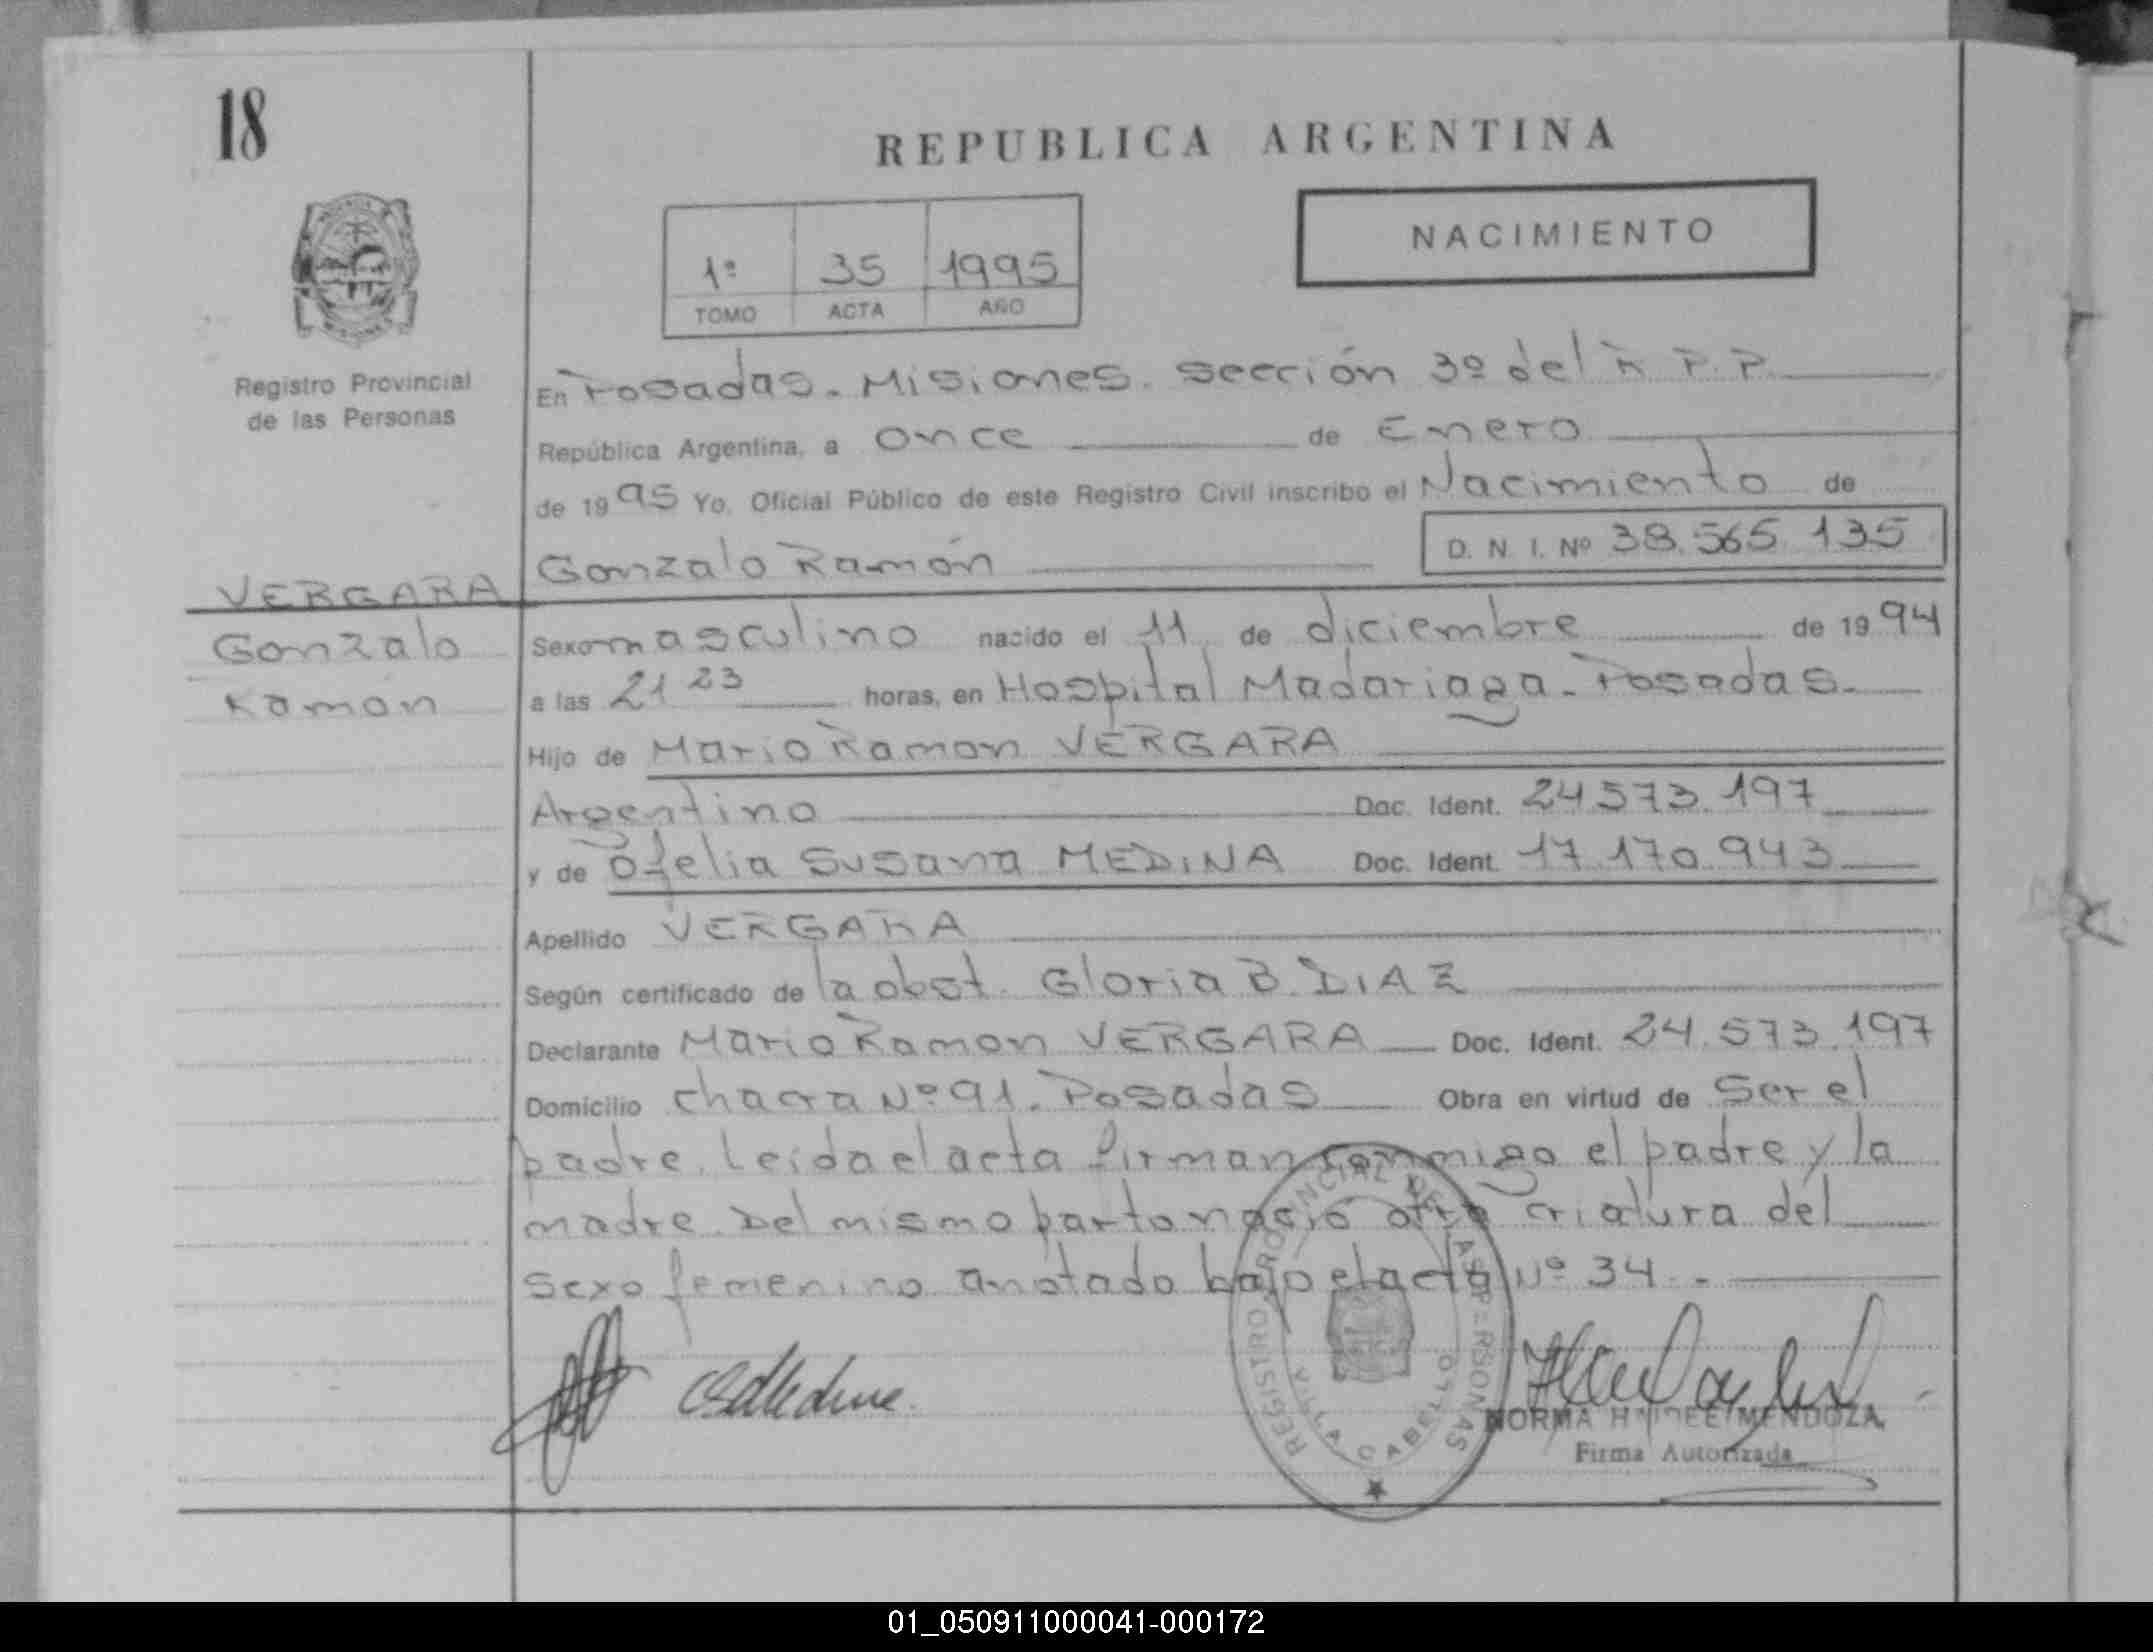 18
REPUBLICA ARGENTINA
NACIMIENTO
1º 35 1995
TOMO ACTA AÑO
Registro Provincial
de las Personas
En Posadas. Misiones. Sección 3º del R.P.P.
República Argentina, a once de Enero
de 1995 Yo, Oficial Público de este Registro Civil inscribo el Nacimiento de
Gonzalo Ramón D. N. I. Nº 38.565.135
VERGARA
Gonzalo
Ramón
Sexo masculino nacido el 11 de diciembre de 1994
a las 21 23 horas, en Hospital Madariaga - Posadas.
Hijo de Mario Ramon VERGARA
Argentino Doc. Ident. 24.573.197
y de Ofelia Susana MEDINA Doc. Ident. 17.170.943
Apellido VERGARA
Según certificado de la obst. Gloria B. DIAZ
Declarante Mario Ramon VERGARA Doc. Ident. 24.573.197
Domicilio Chacra Nº 91. Posadas Obra en virtud de Ser el
padre. Leida el acta firman conmigo el padre y la
madre. Del mismo parto nació otra criatura del
sexo femenino anotado bajo el acta Nº 34.-
REGISTRO PROVINCIAL DE LAS PERSONAS
VILLA CABELLO
NORMA HAIDEE MENDOZA
Firma Autorizada
01_050911000041-000172